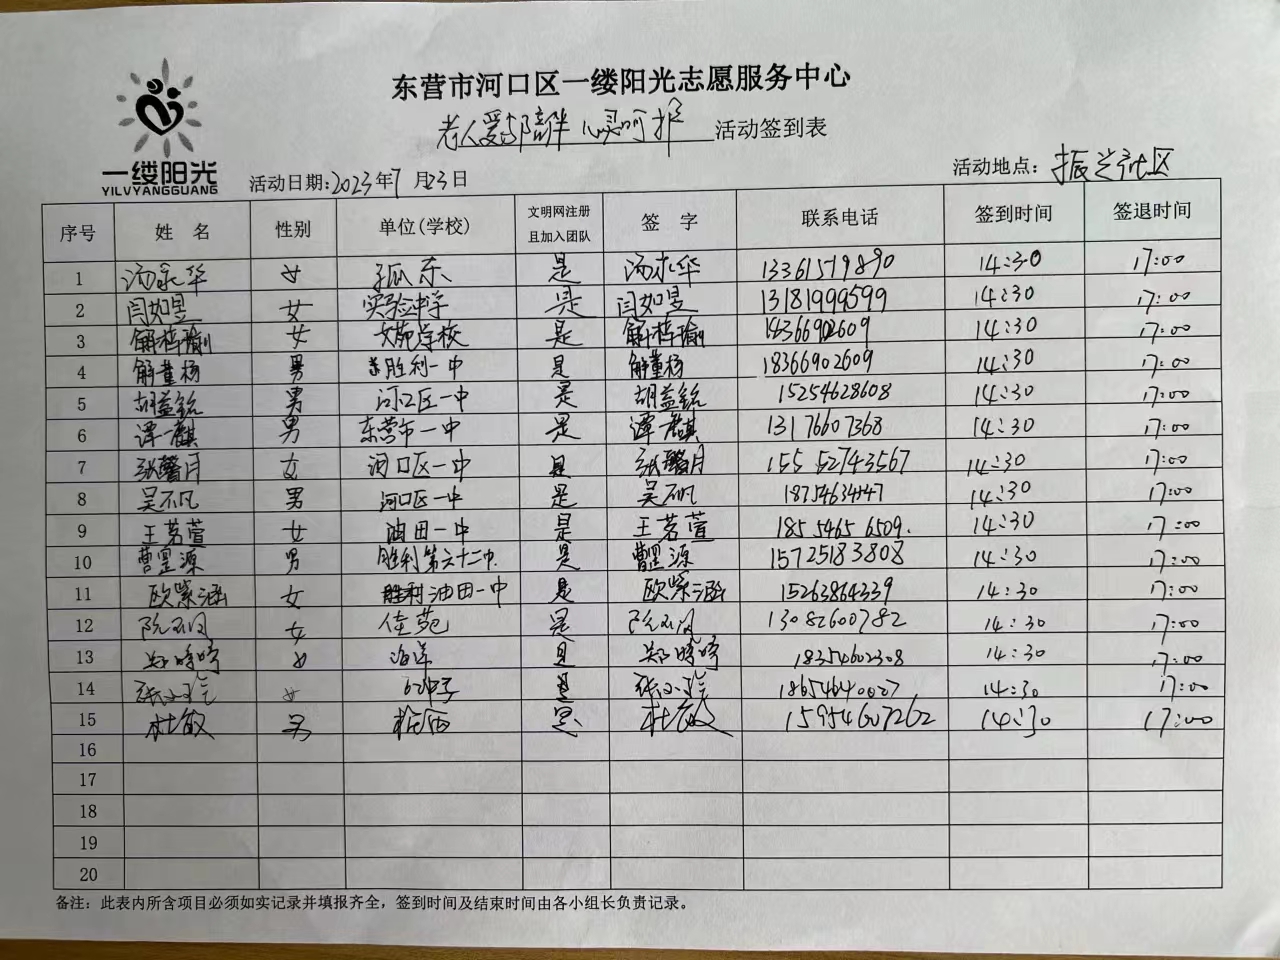 一缕阳光
YILVYANGGUANG
东营市河口区一缕阳光志愿服务中心
老人爱陪伴 心灵呵护 活动签到表
活动日期:2023年7月23日
活动地点: 振兴社区
序号 姓 名 性别 单位(学校) 文明网注册且加入团队 签 字 联系电话 签到时间 签退时间
1 汤永华 女 孤东 是 汤永华 13361579890 14:30 17:00
2 闫如昱 女 实验中学 是 闫如昱 13181999599 14:30 17:00
3 解梓瑜 女 学校 是 解梓瑜 14:30 17:00
4 解董杨 男 东胜利一中 是 解董杨 18366902609 14:30 17:00
5 胡益铭 男 河口区一中 是 胡益铭 15254628608 14:30 17:00
6 谭麒 男 东营市一中 是 谭麒 13176607368 14:30 17:00
7 张馨月 女 河口区一中 是 张馨月 15552743567 14:30 17:00
8 吴不凡 男 河口区一中 是 吴不凡 14:30 17:00
9 王茗萱 女 油田一中 是 王茗萱 18554656509. 14:30 17:00
10 曹源 男 胜利第六十二中. 是 曹源 15725183808 14:30 17:00
11 欧紫涵 女 胜利油田一中 是 欧紫涵 15263864339 14:30 17:00
12 阮 女 佳苑 是 阮 13082600782 14:30 17:00
13 郑婷婷 女 海洋 是 郑婷婷 18354602308 14:30 17:00
14 张 女 是 张 18654640027 14:30 17:00
15 杜敏 男 是 杜敏 15954607262 14:30 17:00
16
17
18
19
20
备注：此表内所含项目必须如实记录并填报齐全，签到时间及结束时间由各小组长负责记录。